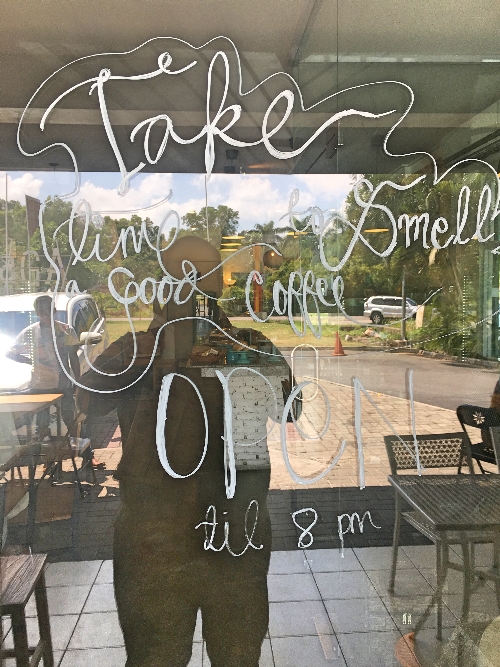 Take
time to Smell
a Good Coffee
OPEN
til 8 pm